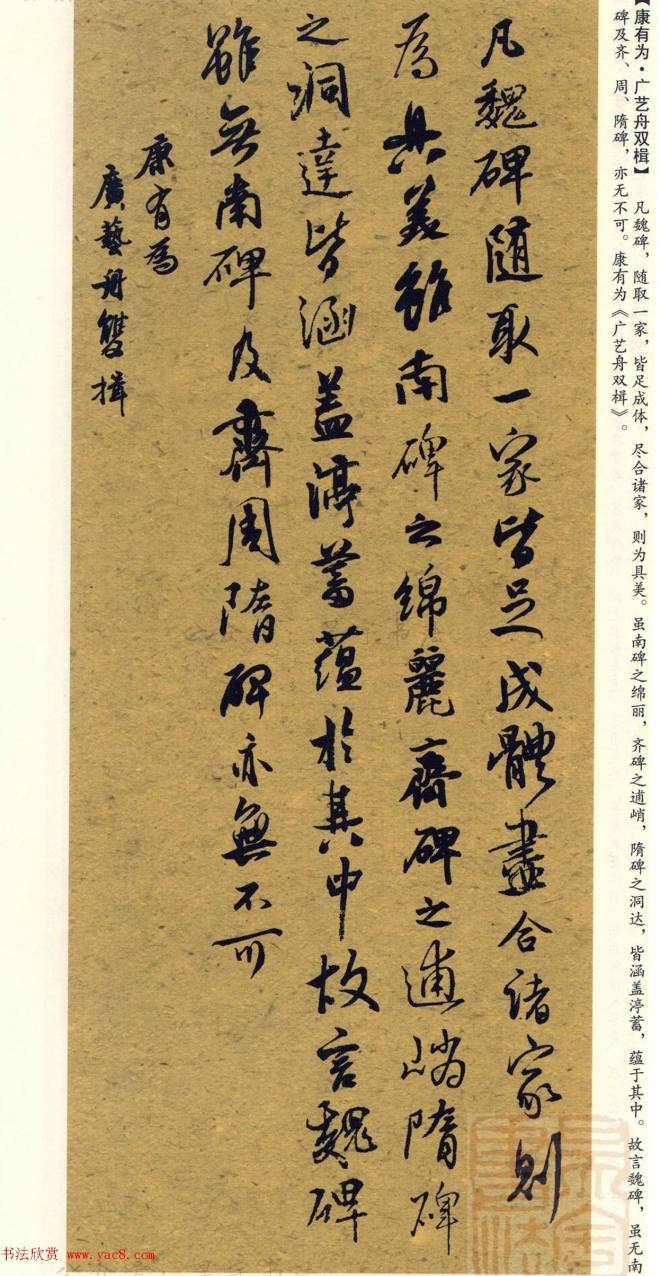 【康有为·广艺舟双楫】 凡魏碑，随取一家，皆足成体，尽合诸家，则为具美。虽南碑之绵丽，齐碑之逋峭，隋碑之洞达，皆涵盖渟蓄，蕴于其中。故言魏碑，虽无南
碑及齐、周、隋碑，亦无不可。康有为《广艺舟双楫》。
凡魏碑随取一家皆足成體盡合诸家则
為具美雖南碑之綿麗齊碑之逋峭隋碑
之洞達皆涵蓋渟蓄蕴於其中故言魏碑
雖無南碑及齊周隋碑亦無不可
康有為
廣藝舟雙楫
书法欣赏 www.yac8.com